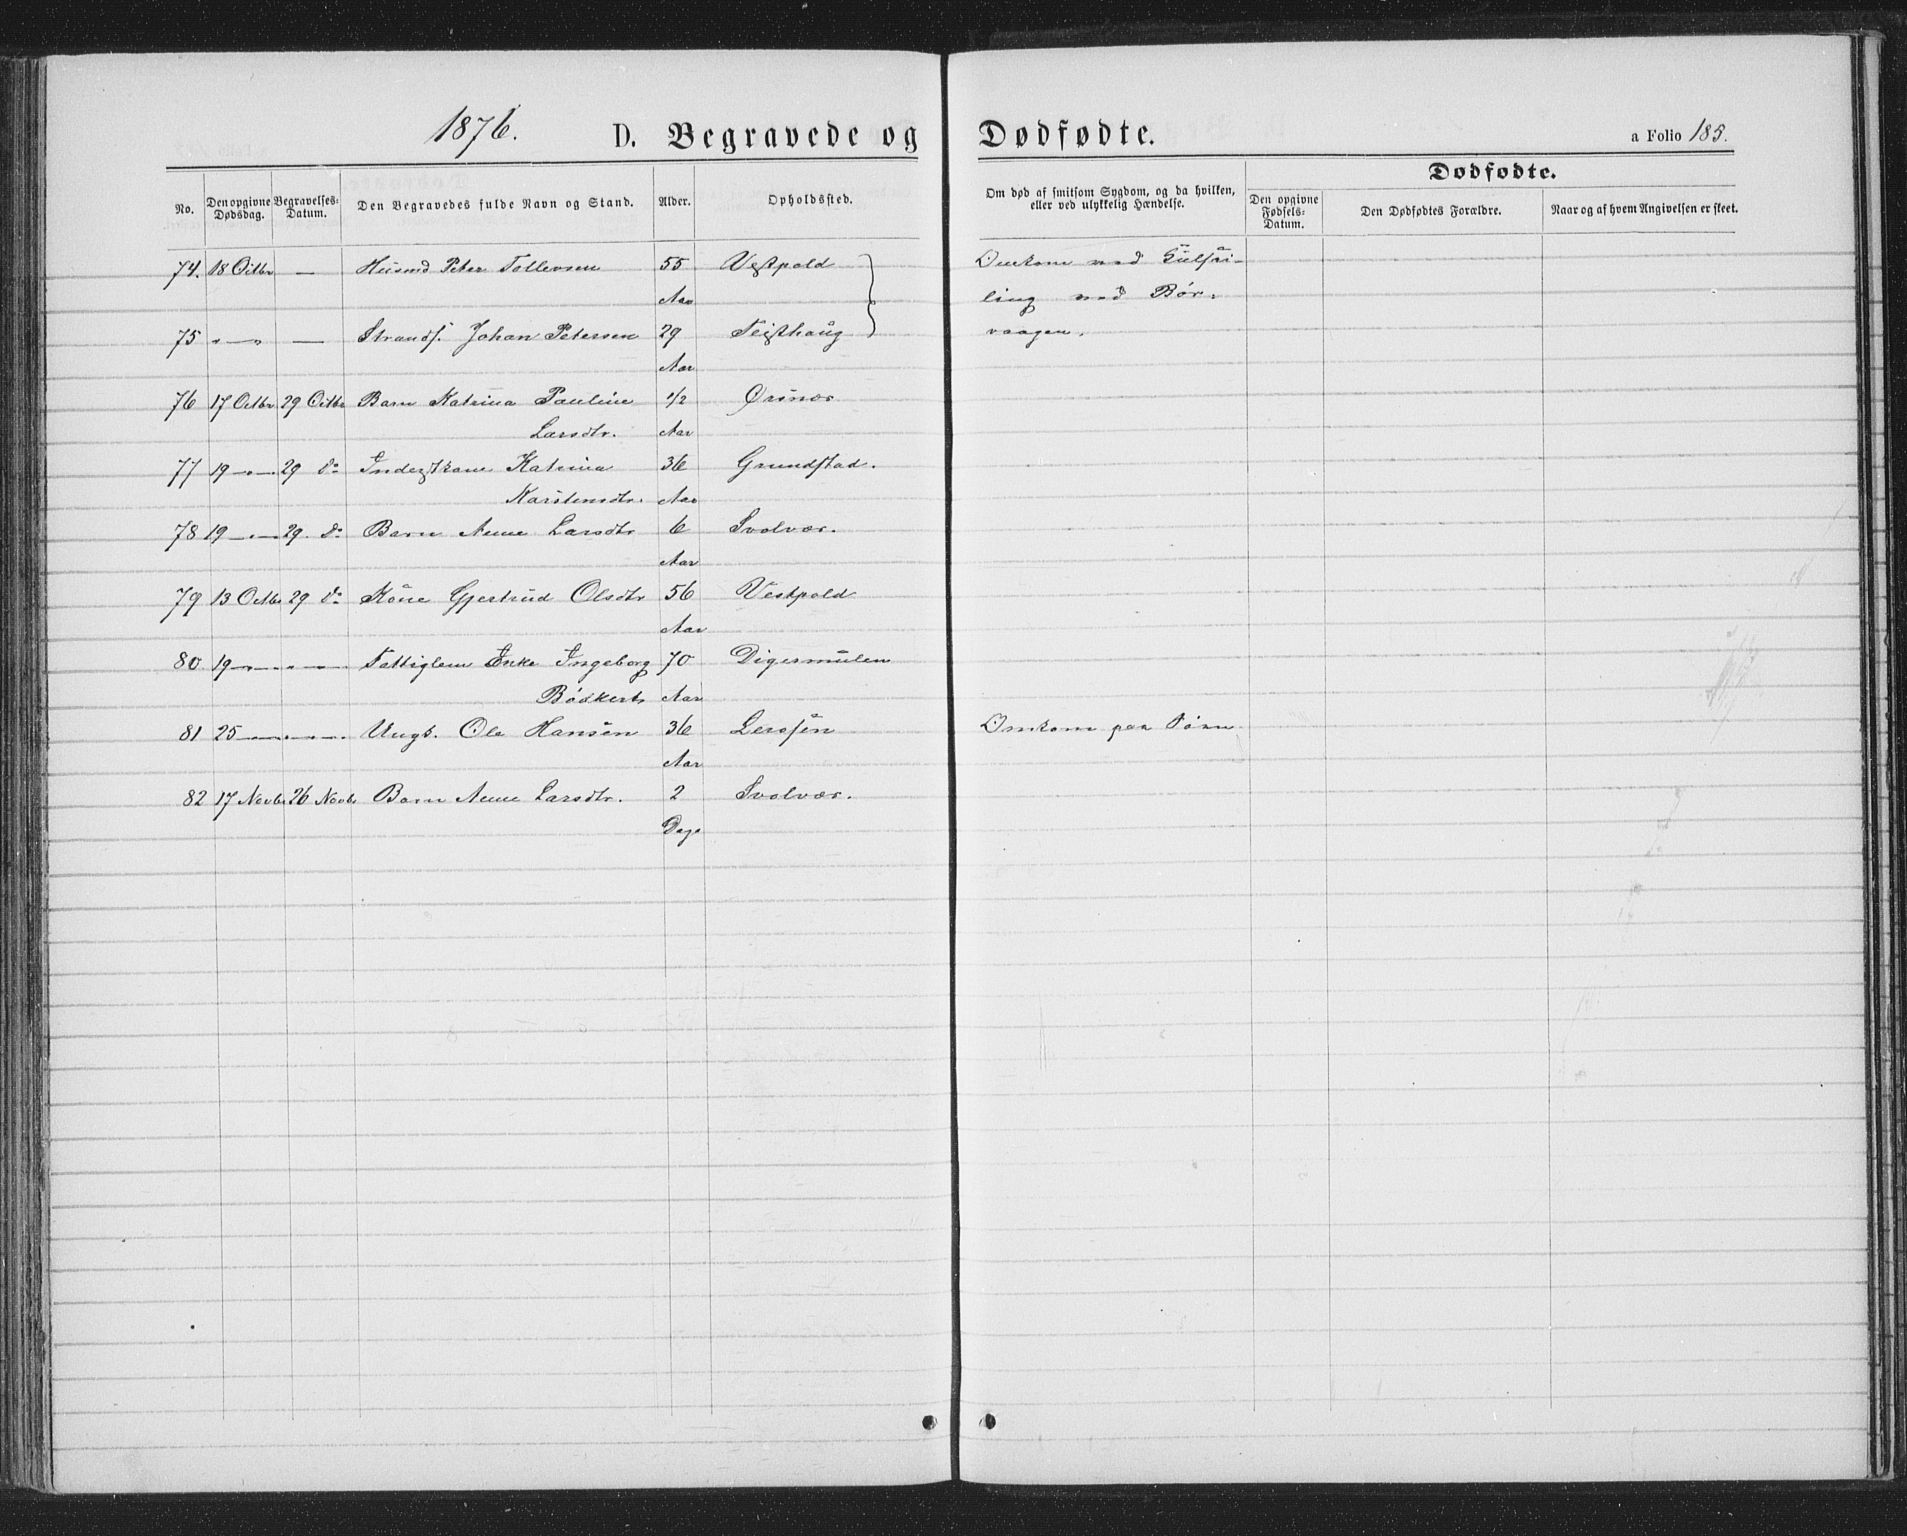 1876. D. Begravede og Dødfødte. a Folio 185.
Dødfødte.
No. Den opgivne Dødsdag. Begravelses-Datum. Den Begravedes fulde Navn og Stand. Alder. Opholdssted. Om død af smitsom Sygdom, og da hvilken, eller ved ulykkelig Hændelse. Den opgivne Fødsels-Datum. Den Dødfødtes Forældre. Naar og af hvem Angivelsen er skeet.
74. 18 Octbr — Husmd Peter Tollevsen 55 Vestpold Omkom ved Kulsei-
Aar ling ved Bør-
75 " — " — Strands. Johan Petersen 29 Teisthaug vaagen.
Aar
76 17 Octbr 29 Octbr Barn Katrina Pauline 1/2 Ørsnæs
Larsdtr. Aar
77 19 — " — 29 do Inderstkone Katrina 36 Grundstad.
Karstensdtr. Aar
78 19 — " — 29. do Barn Anne Larsdtr 6 Svolvær.
Aar
79 13 Octbr 29 do Kone Gjertrud Olsdtr 56 Vestpold
Aar
80 19 — " — " — " — Fattiglem Enke Ingeborg 70 Digermulen
Bödkert Aar
81 25 — " — " — " — Ungk. Ole Hansen 36 Omkom paa Söen
Aar
82 17 Novbr 26 Novbr Barn Anne Larsdtr. 2 Svolvær.
Dage